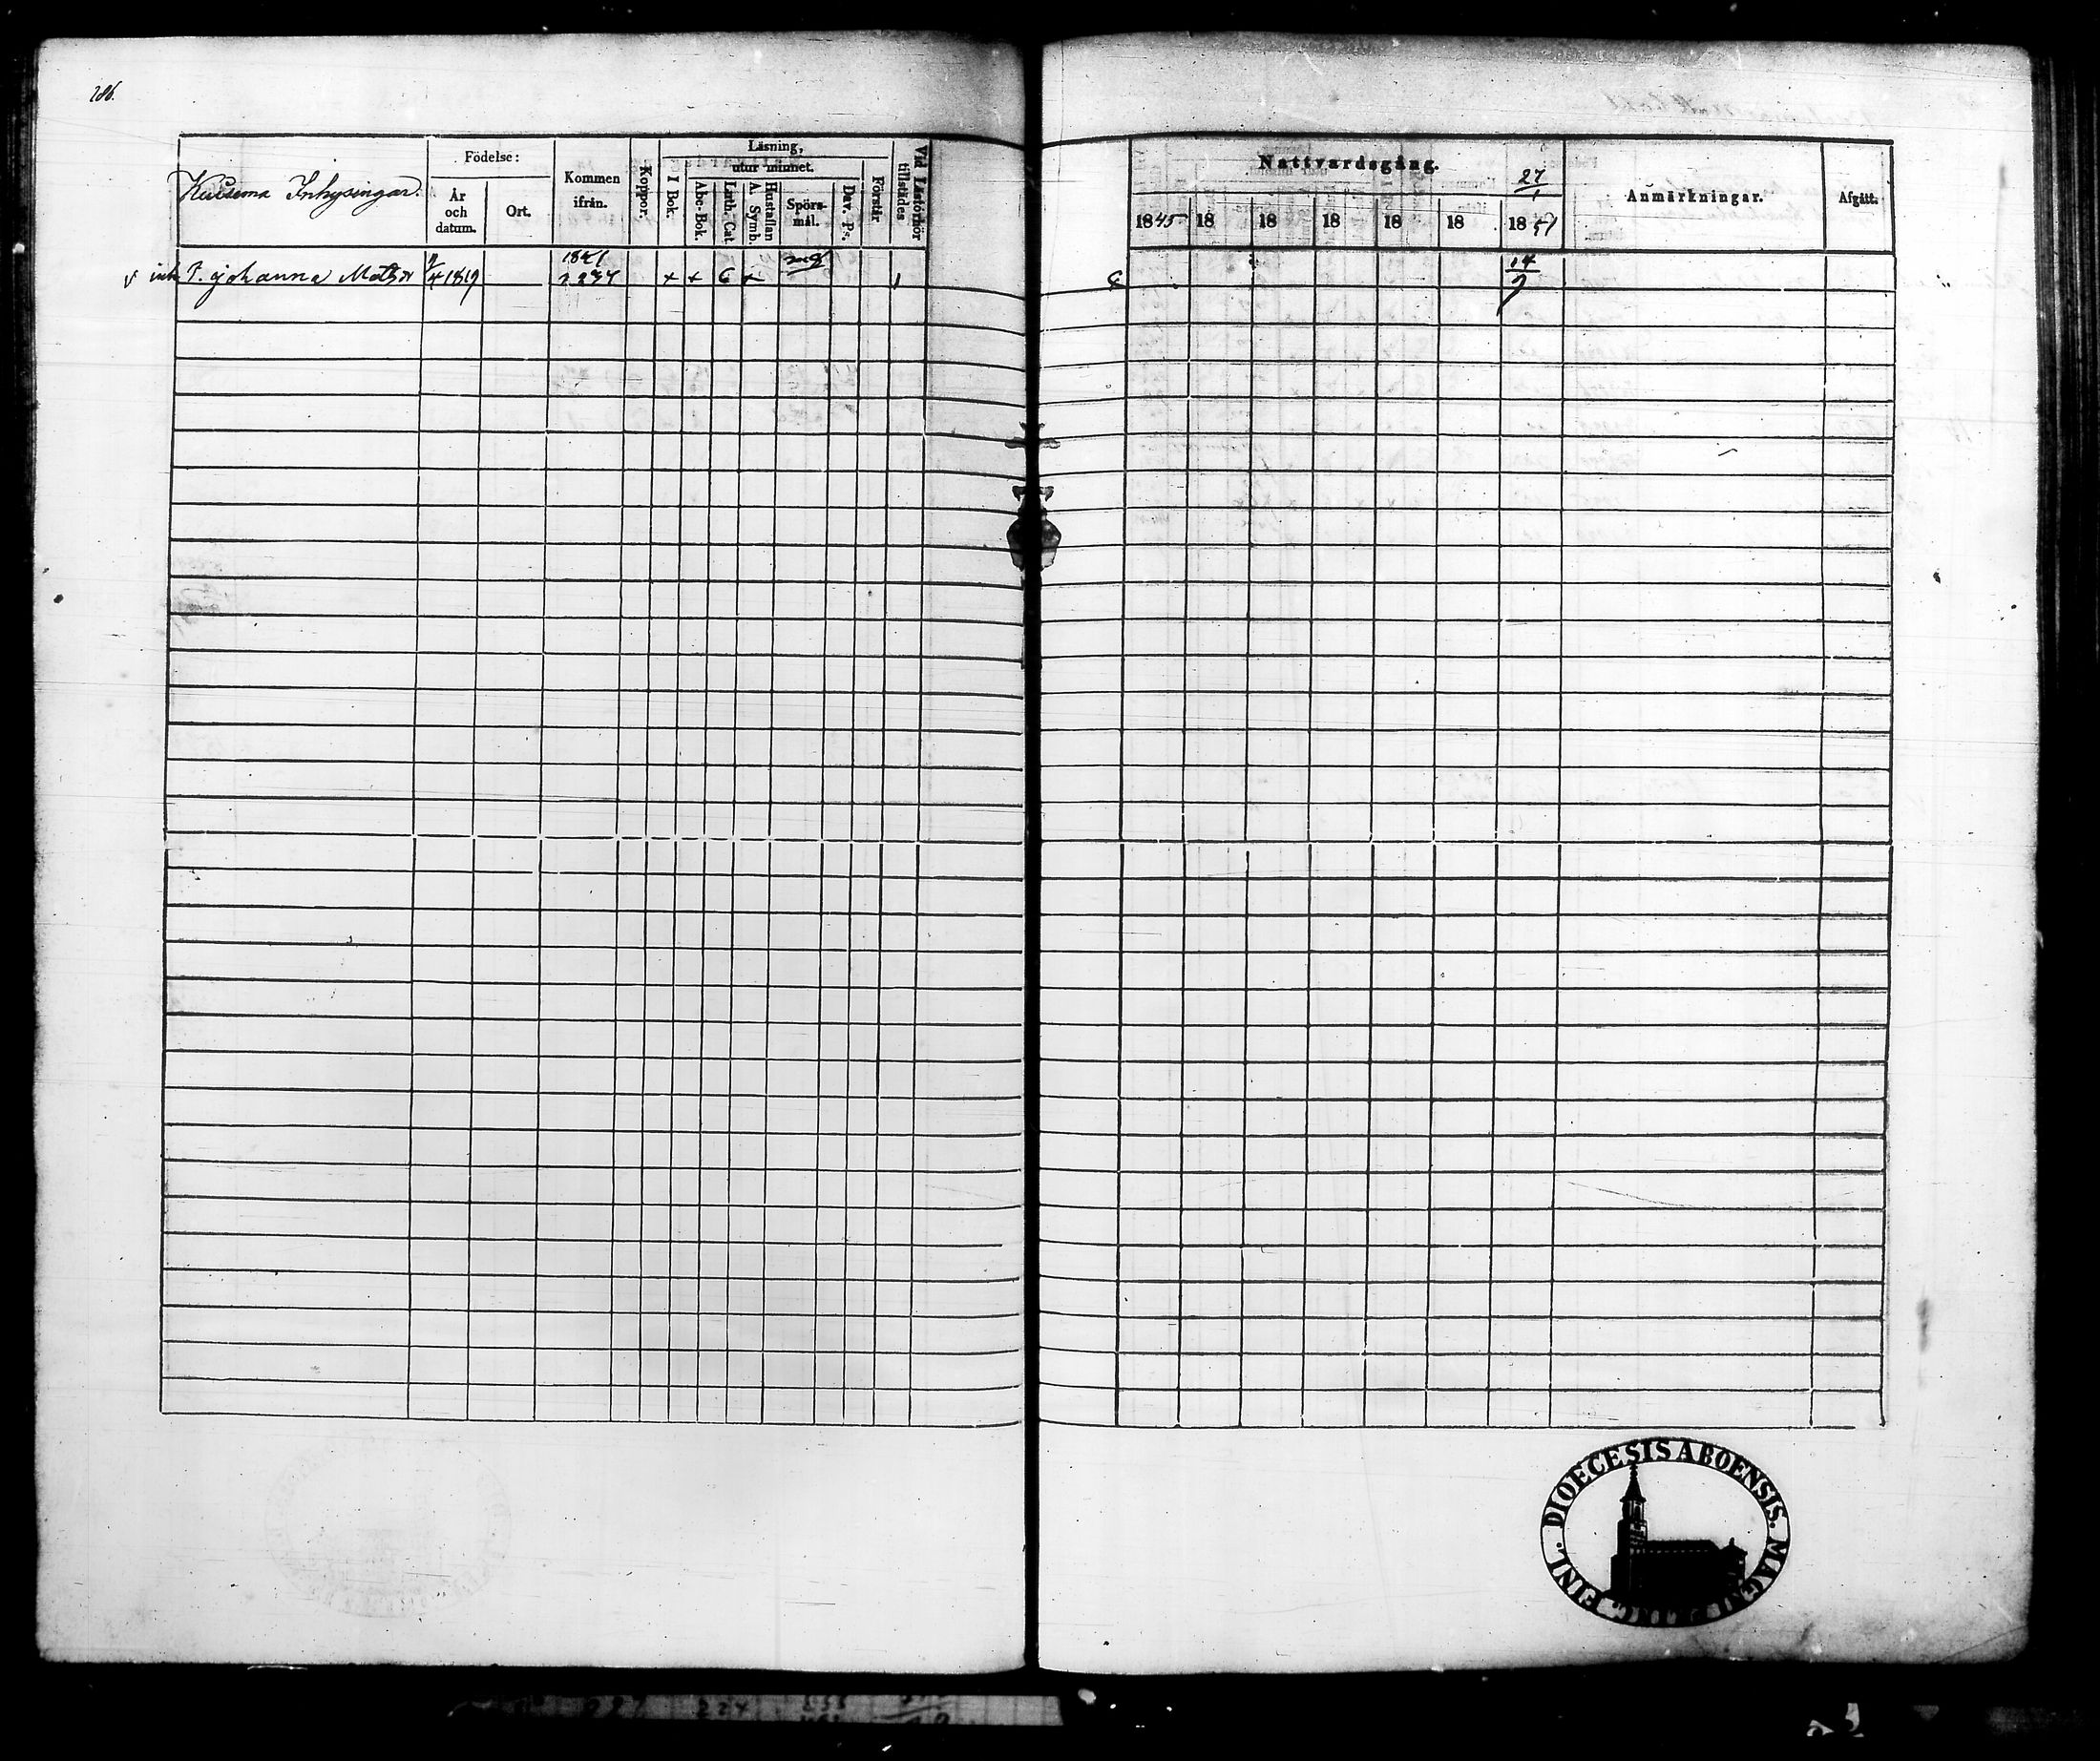 286.
Inhysingar.
Födelse:
År och datum.
Ort.
Kommen ifrån.
Koppor.
Läsning,
utur minnet.
I Bok.
Abc-Bok.
Luth. Cat.
Hustaflan
A. Symb.
Spörs-
mål.
Dav. Ps.
Förstår
Vid Läseförhör
tillstädes
Nattvardsgång.
27
1
1845 18 18 18 18 18 1851
Anmärkningar.
Afgått.
1841
Johanna
4 1819
234
+ + 6 +
1
14
7
DIOECESIS ABOENSIS. MAGNI DUC. FINL.